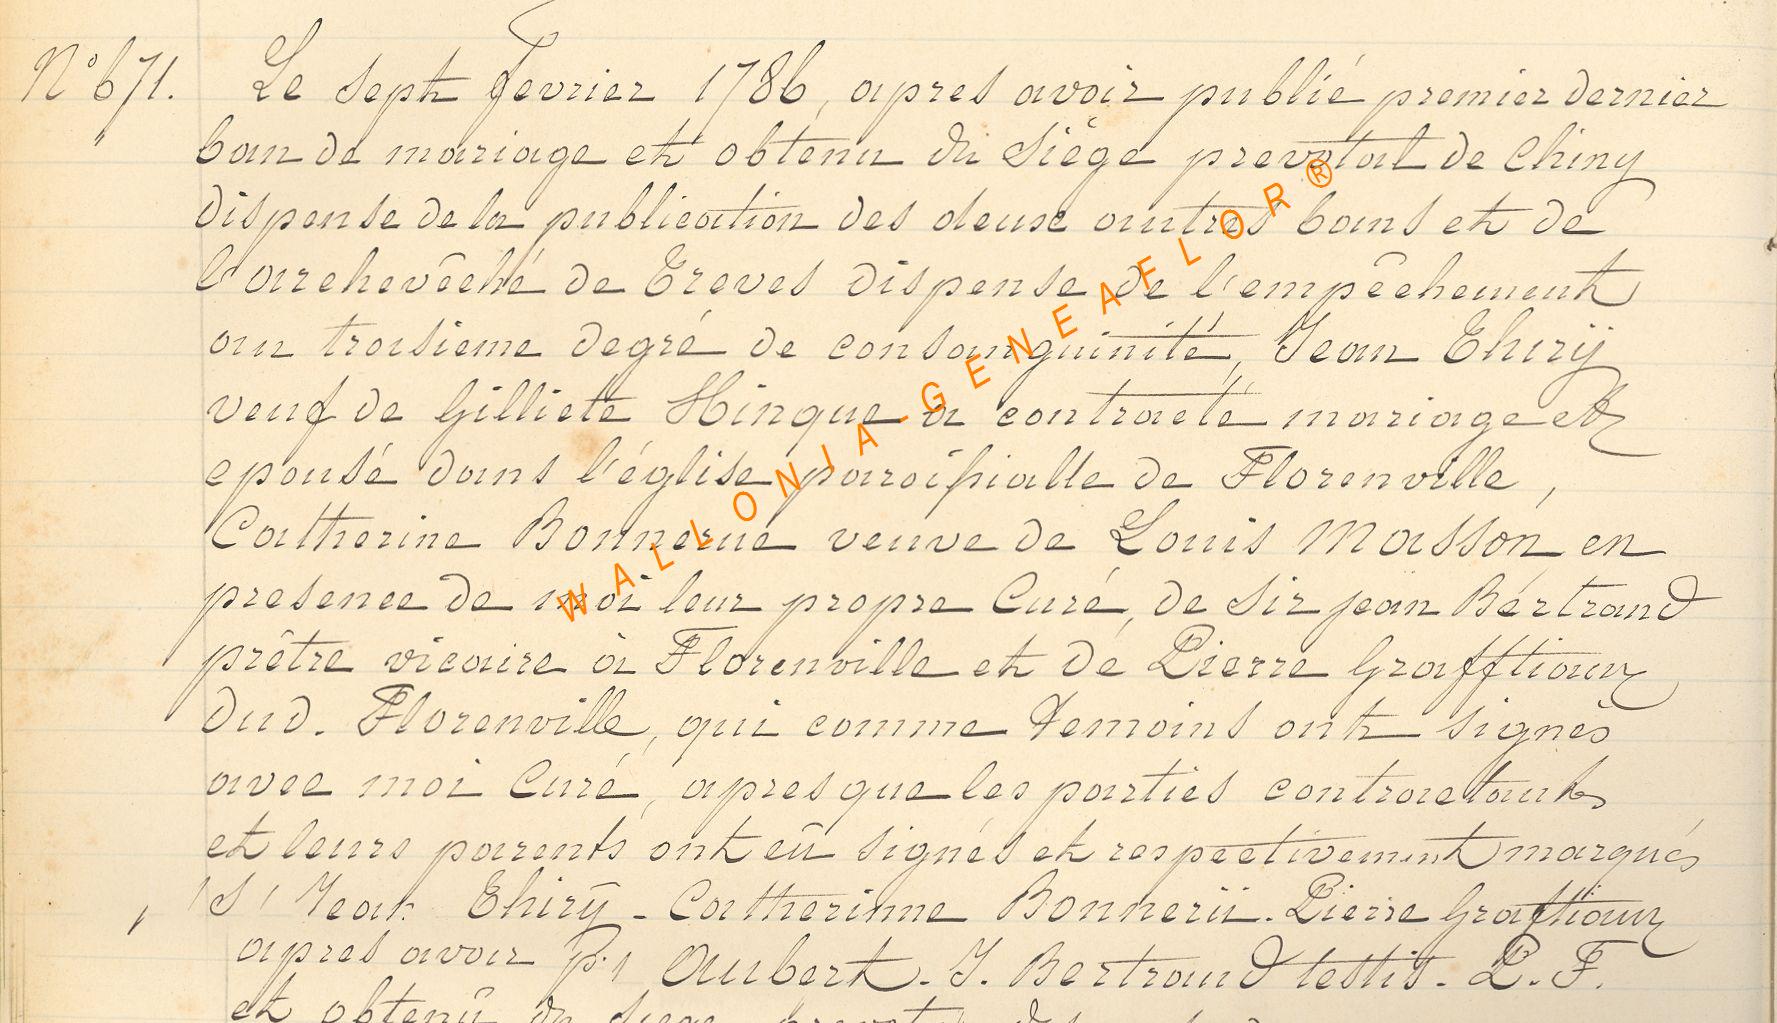 N° 671. Le sept fevrier 1786, apres avoir publié premier dernier
ban de mariage et obtenu du Siège prevotal de Chiny
dispense de la publication des deux autres bans et de
l'archevêché de Treves dispense de l'empêchement
au troisieme degré de consanguinité, Jean Thirÿ
veuf de Gilliete Hinque a contracté mariage et
epousé dans l'église paroissialle de Florenville,
Catherine Bonnerue veuve de Louis Masson en
presence de moi leur propre Curé, de Sir jean Bertrand
prêtre vicaire à Florenville et de Pierre Grafftiaux
dud. Florenville, qui comme temoins ont signés
avec moi Curé, apres que les parties contractants
et leurs parents ont eû signés et respectivement marqués
'S' Jean Thirÿ - Catherinne Bonnerüi. Pierre Graftiaux
apres avoir p.1 Aubert. J. Bertrand testis. P. F.
et obtenû du siege
WALLONIA-GENEAFLOR®